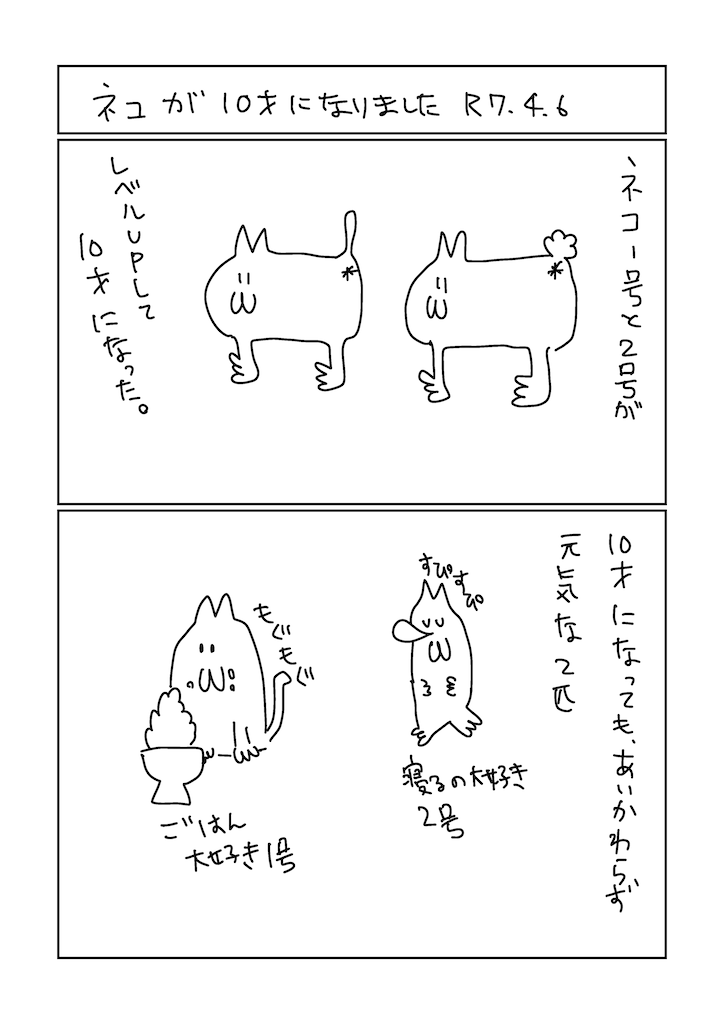 ネコが10才になりました R7.4.6
ネコ1号と2号が
レベルUPして
10才になった。
10才になっても、あいかわらず
元気な2匹
すぴ
すぴ
寝るの大好き
2号
もぐ
もぐ
ごはん
大好き1号